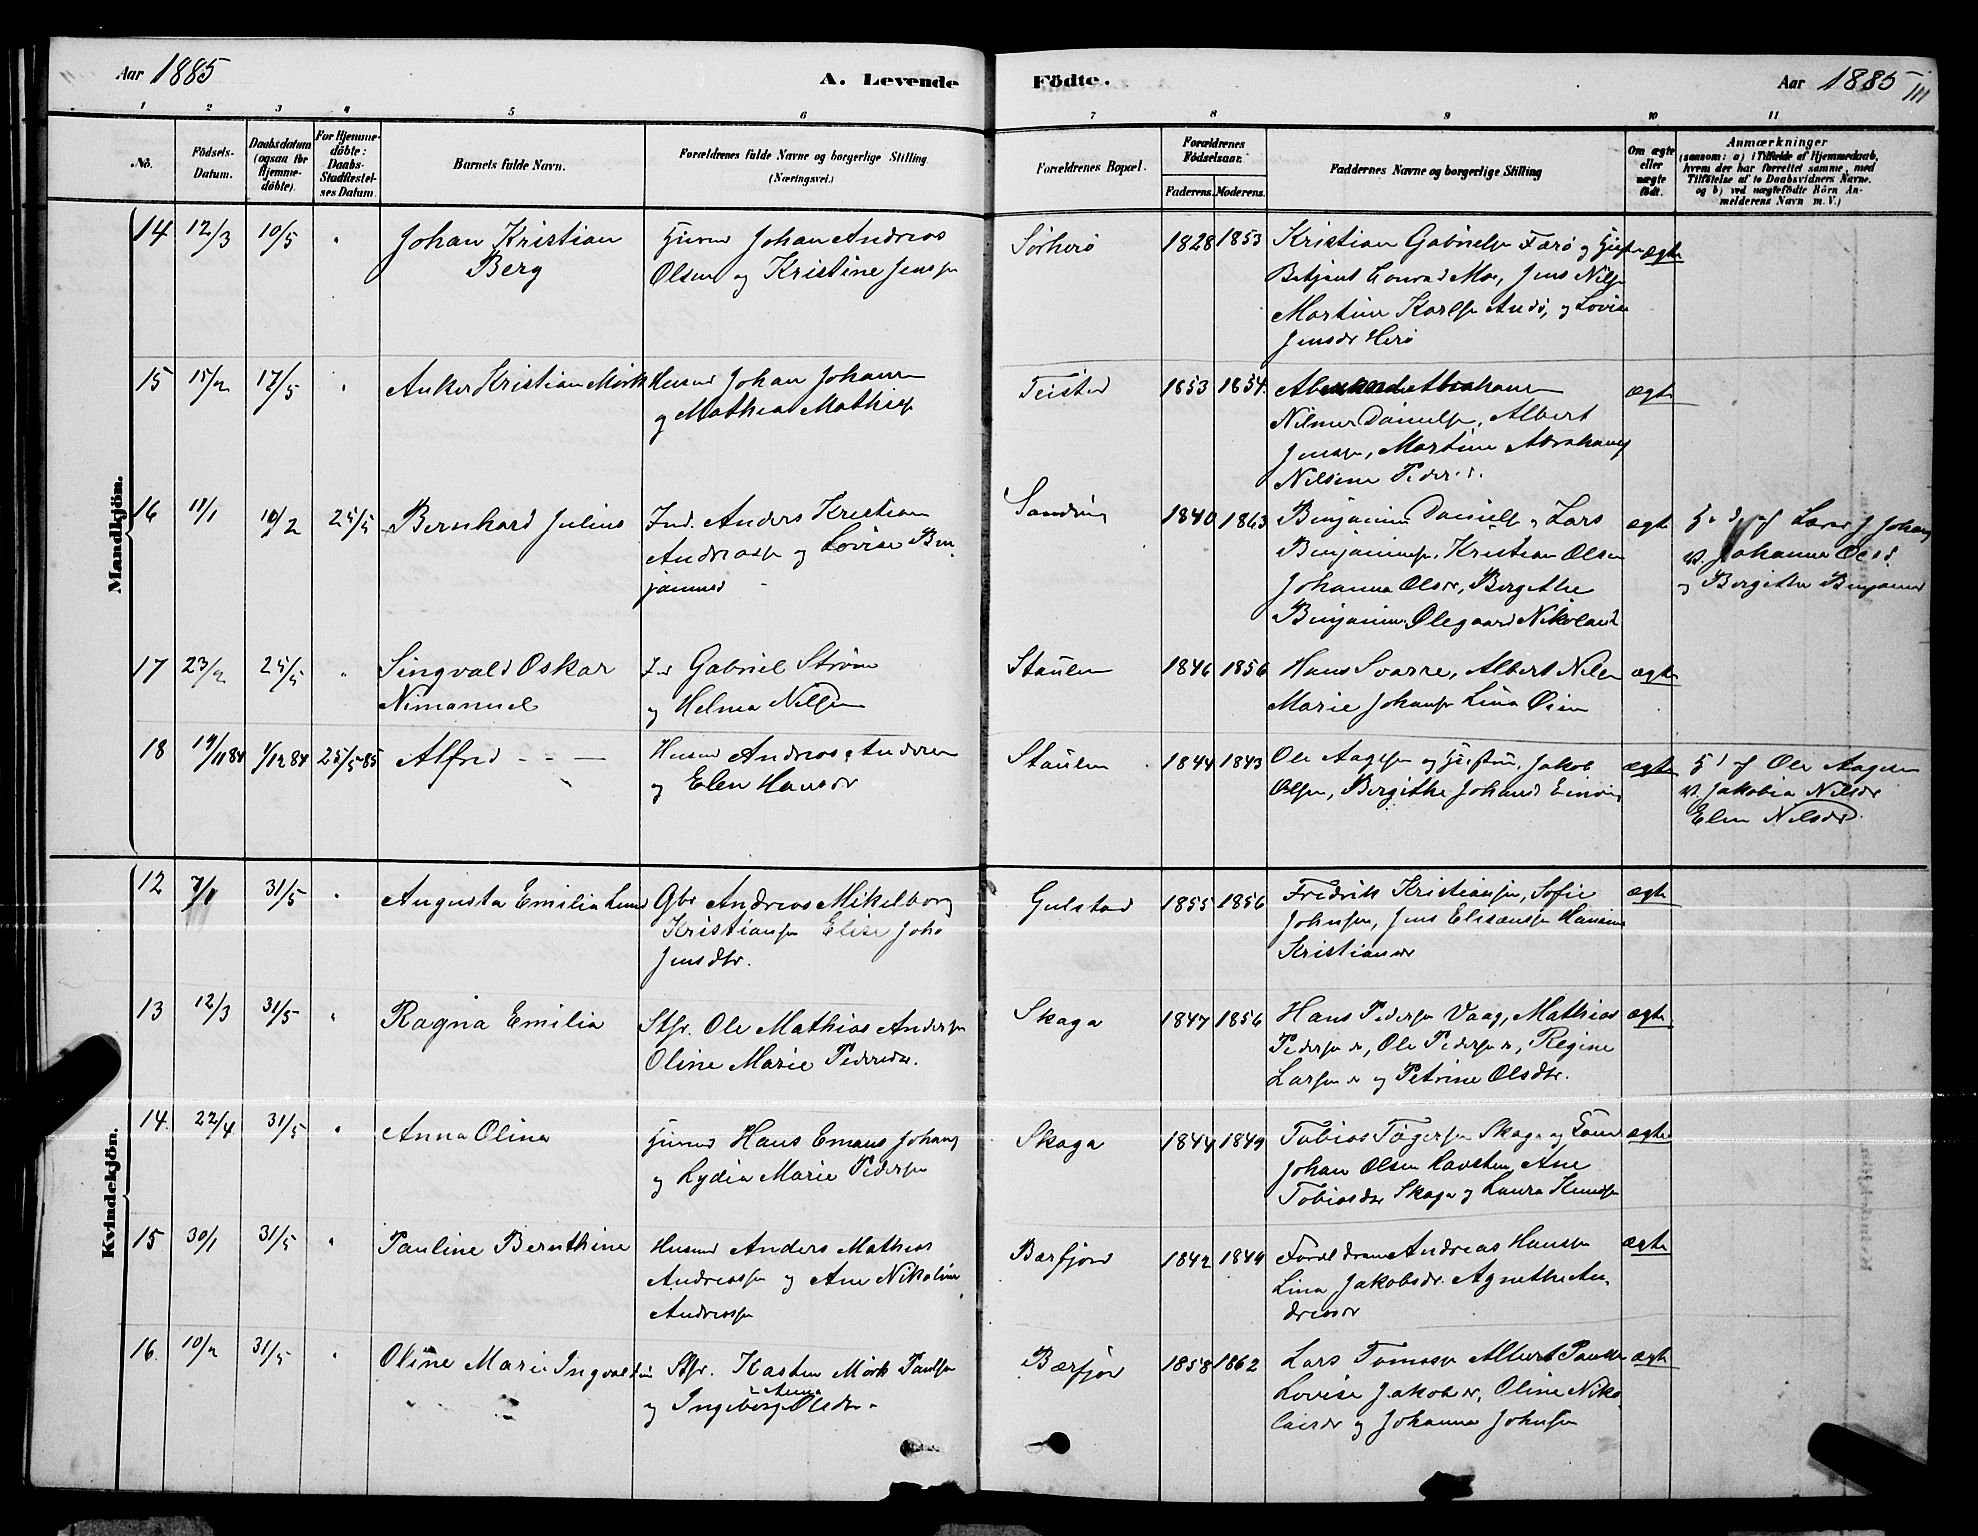 Aar 1885
A. Levende
Födte.
Aar 1885
111
1 2 3 4 5 6 7 8 9 10 11
No.
Födsels-
Datum.
Daabsdatum
(ogsaa for
Hjemme-
döbte).
For Hjemme-
döbte:
Daabs-
Stadfæstel-
ses Datum.
Barnets fulde Navn.
Forældrenes fulde Navne og borgerlige Stilling
(Næringsvei.)
Forældrenes Bopæl.
Forældrenes
Födselsaar.
Faderens. Moderens.
Faddernes Navne og borgerlige Stilling
Om ægte
eller
uægte
födt.
Anmærkninger
(saasom: a) i Tilfælde af Hjemmedaab,
hvem der har forrettet samme, med
Tilföielse af to Daabsvidners Navne.
og b) ved uægtefödte Börn An-
melderens Navn m. V.)
Mandkjön.
14 12/3 10/5 "
Johan Kristian
Berg
Johan Andreas
Olsen og Kristine Jens
Sörherö
1828 1853
Kristian Gabriels Færö og
Betjent Conrad Moe, Jens Nils
Martine Karls Andö, og Lovise
Jensdr Herö
ægte
15 15/2 17/5 "
Anker Kristian Mörk
Husmd Johan Johans
og Mathea Mathis
Teisted
1853 1854.
Abrahams
Nilmer Daniels, Albert
Jens, Martine Abrahams
Nilsine Peders
ægte
16 11/1 10/2 25/5
Bernhard Julius
Ind. Anders Kristian
Andreass og Lovise Ben-
jamins
Sanding
1840 1863
Benjamin Daniels, Lars
Benjamins, Kristian Olsen
Johanna Olsdr, Bergithe
Benjamin, Olegaard Nikolais
ægte
af Lærer J Johans
v. Johanna Olsd.
og Bergithe Benjamins
17 23/2 25/5 "
Singvald Oskar
Nimanuel
Ind Gabriel Ström
og Helmea Nilsen
Staulen
1846 1856
Hans Svarre, Albert Nilsen
Marie Johans Lina Öien
ægte
18 19/11 84 1/12 84 25/5 85
Alfred
Husmd Andreas Andersen
og Elen Hansdr
Staulen
1844 1843
Ole Aagesen og Jakob
Olsen, Bergithe Johansd
ægte
Hd af Ole Aagesen
v. Jakobia Nilsdr
Elen Nilsdr.
Kvindekjön.
12 7/1 31/5 "
Augusta Emilia Lund
Gbr Andreas Mikelborg
Kristians Elise Joha
Jensdtr.
Gulstad
1855 1856
Fredrik Kristiansen, Sofie
Johnsen, Jens Elisæus Hansine
Kristiansdr
ægte
13 12/3 31/5 "
Ragna Emilia
Stfr. Ole Mathias Anders
Oline Marie Pedersdr.
Skaga
1847 1856
Hans Peders Vaag, Mathias
Peders, Ole Peders, Regine
Larsen og Petrine Olsdtr.
ægte
14. 22/4 31/5 "
Anna Olina
Hans Emans Johans
og Lydia Marie Peders
Skaga
1844 1849
Tobias Tögers Skaga og
Johan Olsen Havsten, Ane
Tobiasdr Skaga og Laura Knuds
ægte
15 30/1 31/5 "
Pauline Bernthine
Husmd Anders Mathias
Andreass og Ane Nikoline
Andreass
Bærfjord
1842 1844
Forældrene Andreas Hans
Lina Jakobsdr. Agnethe An-
dreasdr
ægte
16. 10/2 31/5 "
Oline Marie Ingvaldine
Stfr. Kasten Mörk Pauls
og Ingeborg Anna Olsdr.
Bærfjor
1858 1862
Lars Tomas Albert Pauls
Lovise Jakobsdr, Oline Niko-
laisdr og Johanna Johnsen
ægte